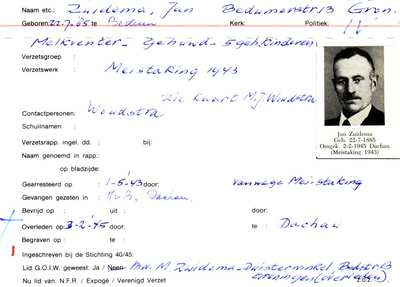 Naam etc.: Zuidema, Jan Bedumerstr 13 Gron.
Geboren: 22.7.'05 te Bedum Kerk: Politiek:
Melkventer - Gehuwd - 5 geh. Kinderen
Verzetsgroep :
Verzetswerk : Meistaking 1943
zie kaart M.J. Woudstra
Contactpersonen: Woudstra
Schuilnamen :
Verzetsrapp. ingel. dd. : bij:
Naam genoemd in rapp:
op bladzijde:
Jan Zuidema
Geb. 22-7-1885
Omgek. 2-2-1945 Dachau
(Meistaking 1943)
Gearresteerd op : 1-5-'43 door: vanwege Mei-staking
Gevangen gezeten in : HvB, Dachau.
Bevrijd op : uit : door:
Overleden op : 3-2-'45 door: te : Dachau
Begraven op : te :
Ingeschreven bij de Stichting 40/45:
Lid G.O.I.W. geweest: Ja / Neen Mw. M. Zuidema-Dwisterwinkel, Bedstr. 13
Groningen (overleden)
Nu lid van: N.F.R. / Expogé / Verenigd Verzet